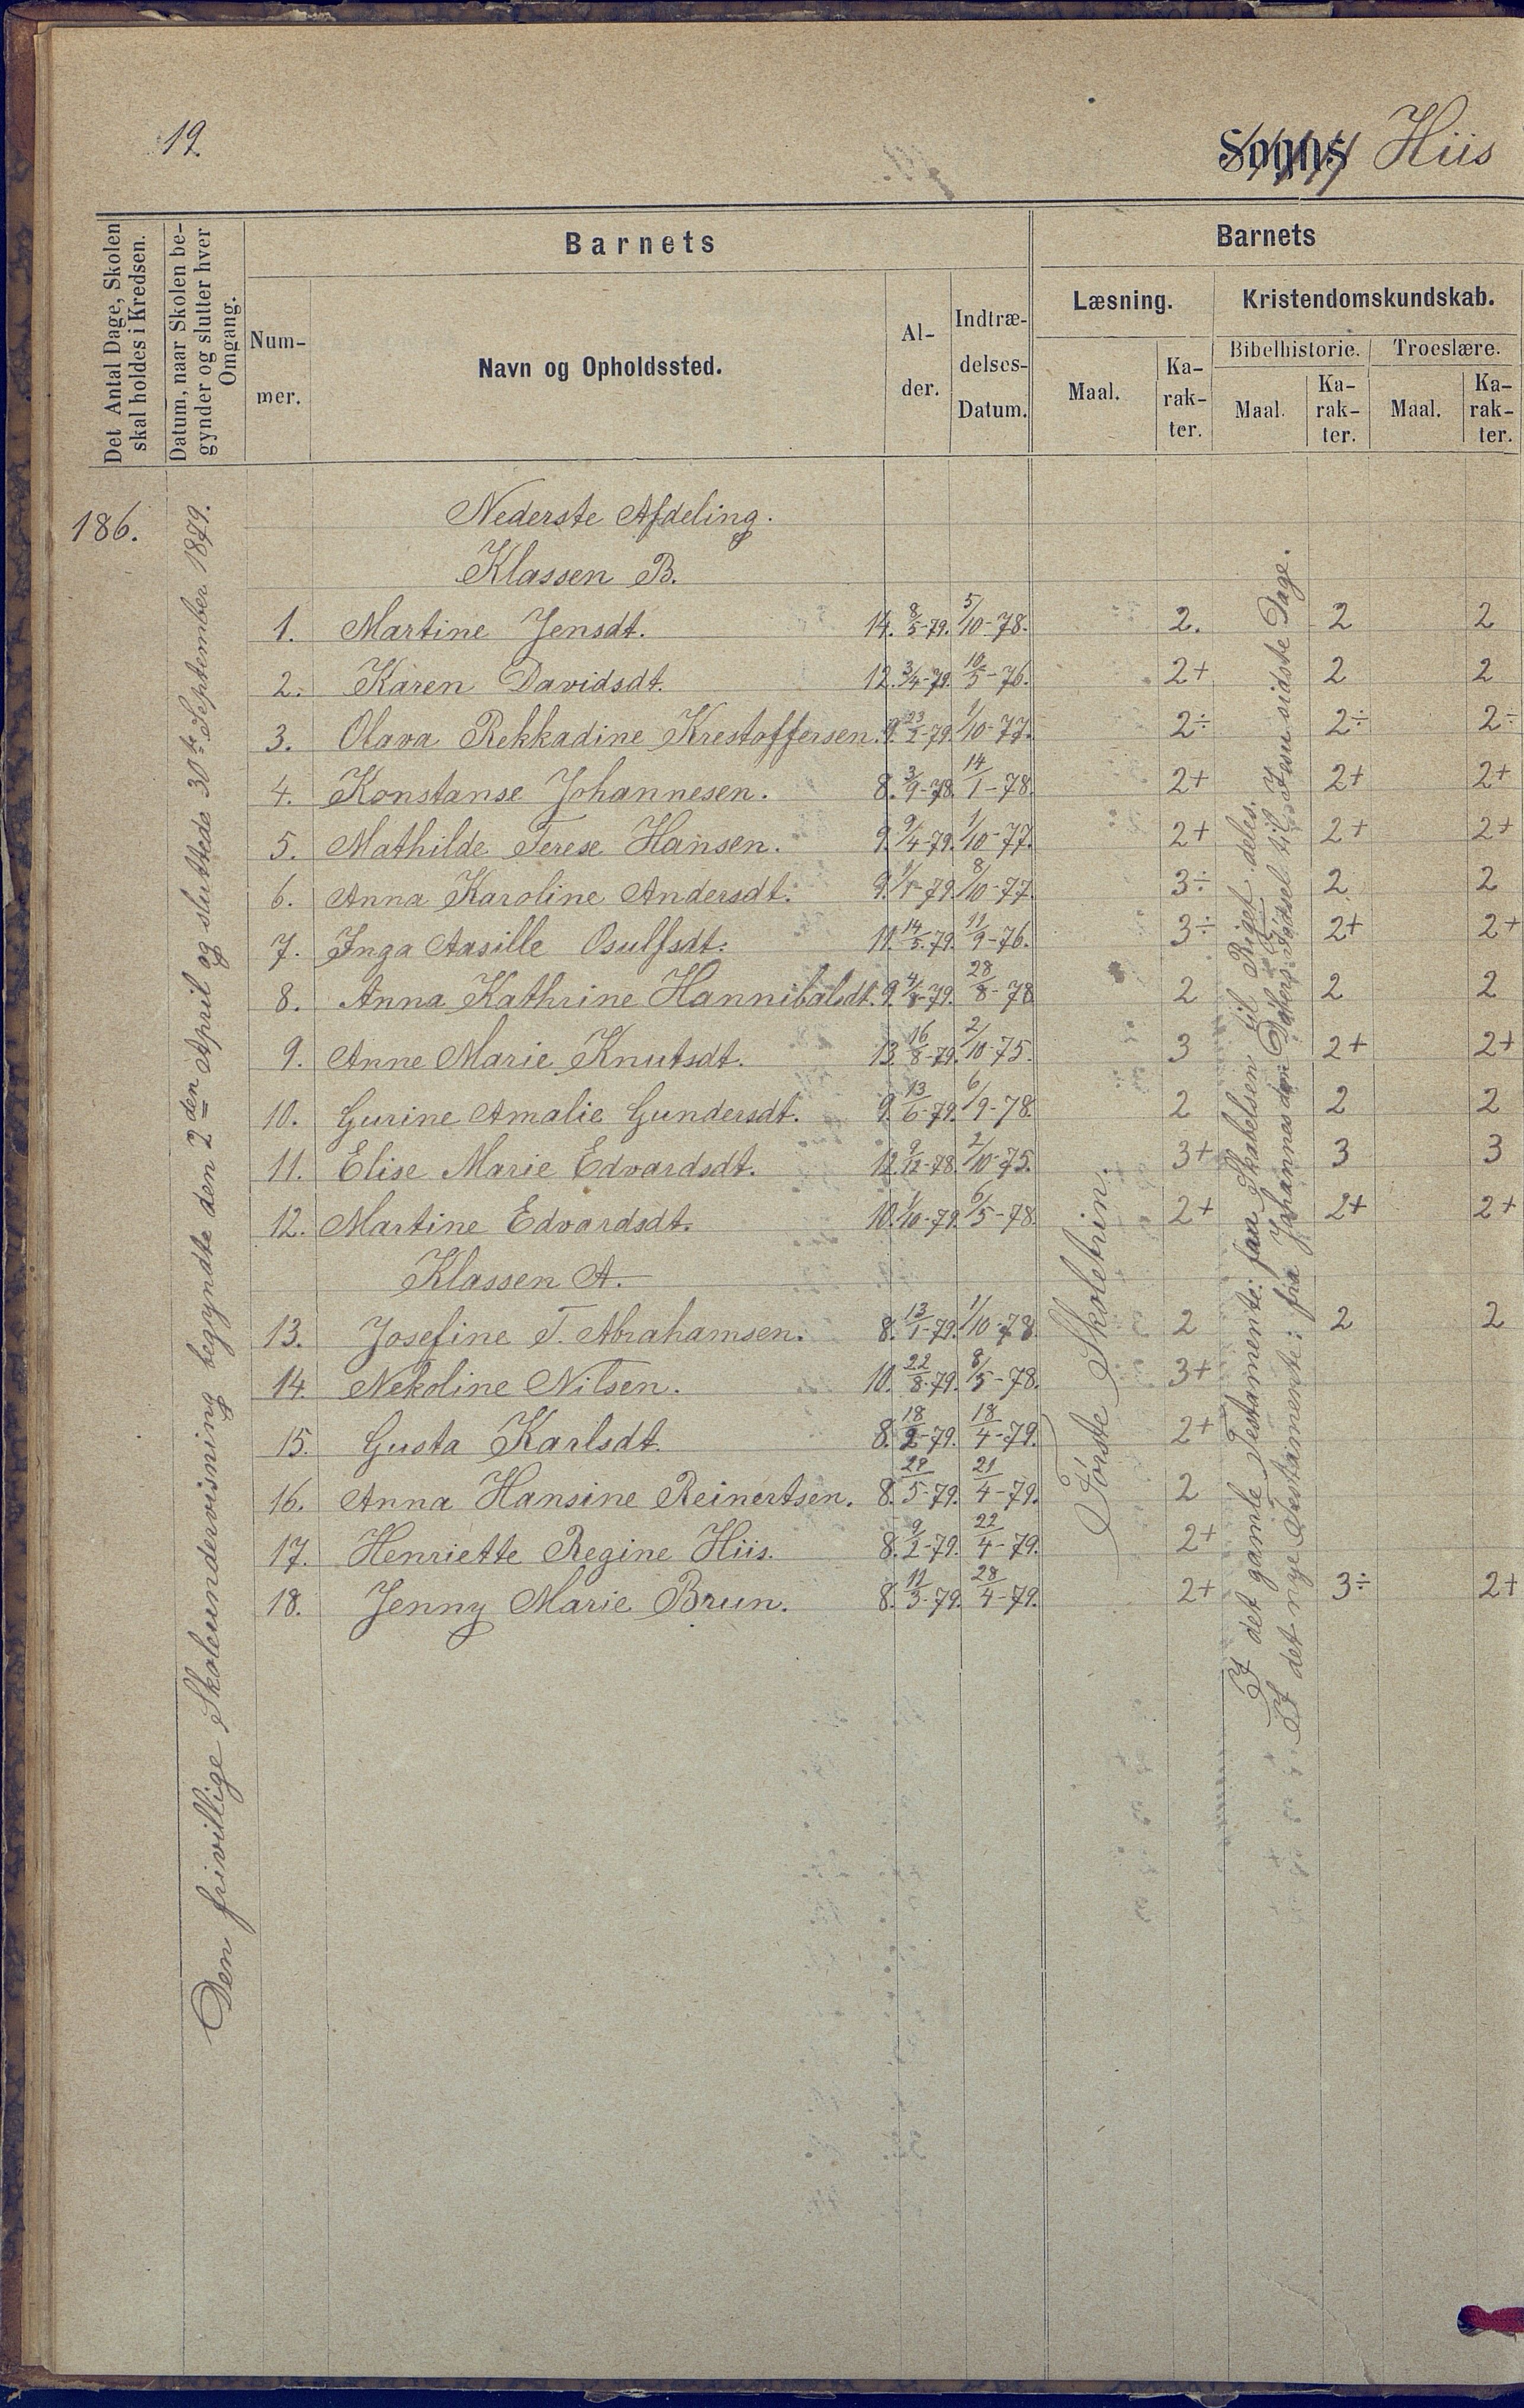 19.
Sogns Hiis
Det Antal Dage, Skolen skal holdes i Kredsen.
Datum, naar Skolen be-gynder og slutter hver Omgang.
Barnets
Num-mer.
Navn og Opholdssted.
Al-der.
Indtræ-delses-Datum.
Barnets
Læsning.
Kristendomskundskab.
Bibelhistorie.
Troeslære.
Maal.
Ka-rak-ter.
Maal.
Ka-rak-ter.
Maal.
Ka-rak-ter.
186.
Den frivillige Skoleundervisning begyndte den 2den April og sluttede 30te September 1879.
Nederste Afdeling.
Klassen B.
1. Martine Jensdt. 14. 8/5-79. 5/10-78. 2. 2 2
2. Karen Davidsdt. 12. 3/4-79. 10/5-76. 2+ 2 2
3. Olava Rekkadine Krestoffersen. 9. 23/2-79. 1/10-77. 2÷ 2÷ 2÷
4. Konstanse Johannesen. 8. 3/9-78. 14/1-78. 2+ 2+ 2+
5. Mathilde Terese Hansen. 9. 9/4-79. 1/10-77. 2+ 2+ 2+
6. Anna Karoline Andersdt. 9. 1/1-79. 8/10-77. 3÷ 2 2
7. Inga Aasille Osulfsdt. 11. 14/5-79. 11/9-76. 3÷ 2+ 2+
8. Anna Kathrine Hannibalsdt. 9. 4/8-79. 28/8-78 2 2 2
9. Anne Marie Knutsdt. 13. 16/8-79. 2/10-75. 3 2+ 2+
10. Gurine Amalie Gundersdt. 9. 13/6-79. 6/9-78. 2 2 2
11. Elise Marie Edvardsdt. 12. 9/12-78. 2/10-75. 3+ 3 3
12. Martine Edvardsdt. 10. 1/10-79. 6/5-78. 2+ 2+ 2+
Klassen A.
13. Josefine T. Abrahamsen. 8. 13/1-79. 1/10-78. 2 2 2
14. Nekoline Nilsen. 10. 22/8-79. 8/5-78. 3+
15. Gusta Karlsdt. 8. 18/2-79. 18/4-79. 2+
16. Anna Hansine Reinertsen. 8. 28/5-79. 21/4-79. 2
17. Henriette Regine Hiis. 8. 9/2-79. 22/4-79. 2+
18. Jenny Marie Brun. 8. 11/3-79. 28/4-79. 2+ 3÷ 2+
Første Skoletrin.
Af det gamle Testamente: fra Skabelsen til Riget deles.
Af det nye Testamente: fra Johannes den Døbers Fødsel til Jesu sidste Dage.